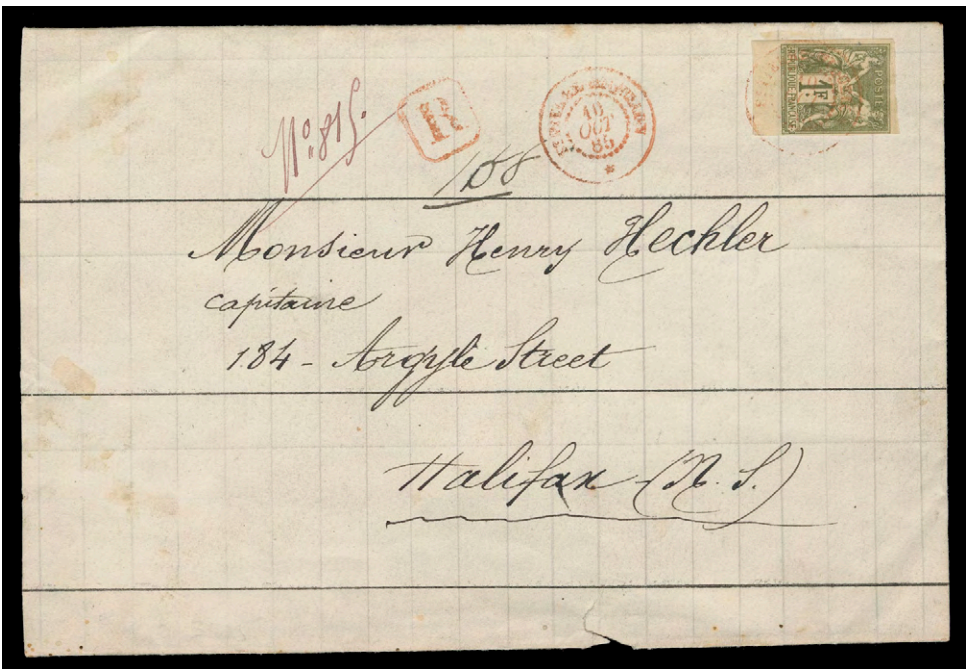 No. 815.
R
ST PIERRE MIQUELON
10
OCT
85
POSTES
1F
REPUBLIQUE FRANCAISE
108
Monsieur Henry Hechler
capitaine
184 - Argyle Street
Halifax (N. S.)